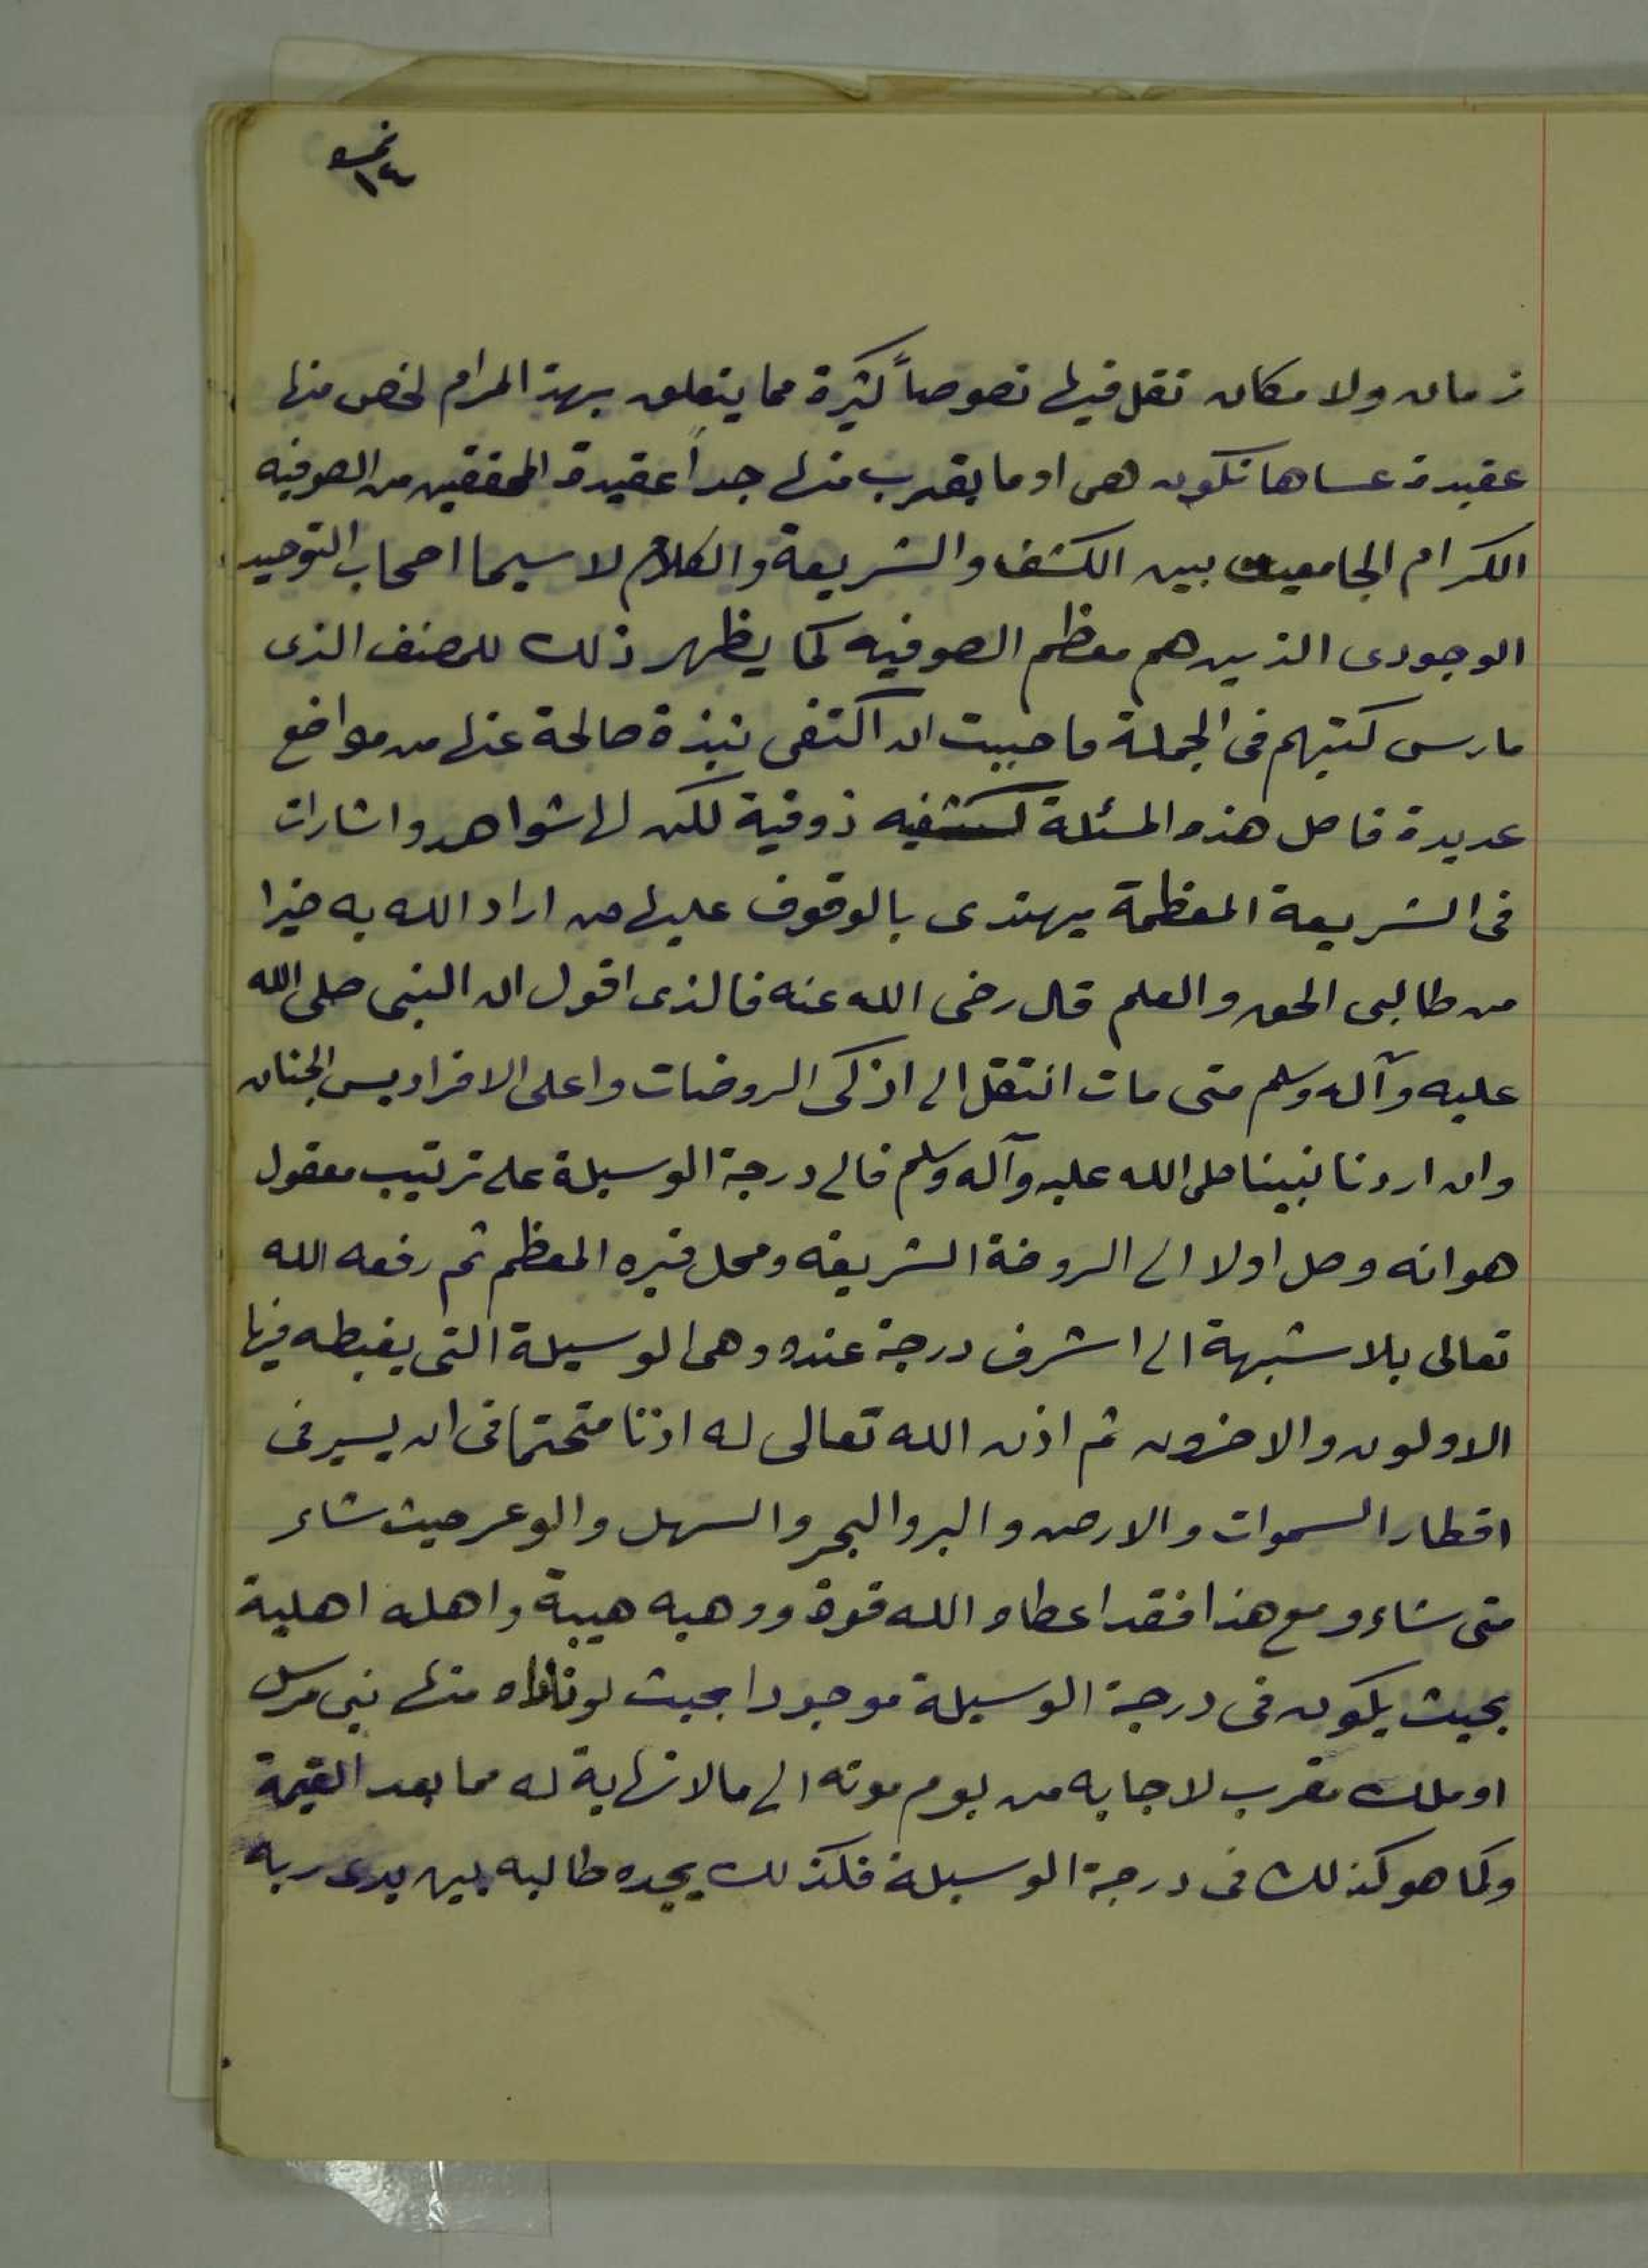 نمره ١٤
زمان ولا مكان نقل فيها نصوصاً كثيرة مما يتعلق بهذ المرام لخص منها
عقيدة عساها تكون هى او ما يقرب منها جداً عقيدة المحققين من الصوفيه
الكرام الجامعين بين الكشف والشريعة والكلام لا سيما اصحاب التوحيد
الوجودى الذين هم معظم الصوفيه كما يظهر ذلك للمصنف الذى
مارس كتبهم فى الجملة فاحببت ان اكتفى بنبذة صالحة عنها من مواضع
عديدة فاصل هذه المسئلة كشفيه ذوقية لكن لها شواهد واشارات
فى الشريعة المعظمة يهتدى بالوقوف عليها من اراد الله به خيرا
من طالبى الحق والعلم قال رضى الله عنه فالذى اقول ان النبى صلى الله
عليه وآله وسلم متى مات انتقل الى ازكى الروضات واعلى الافراديس الجنان
وان اردنا نبينا صلى الله عليه وآله وسلم فالى درجة الوسيلة على ترتيب معقول
هو انه وصل اولا الى الروضة الشريفه ومحل قبره المعظم ثم رفعه الله
تعالى بلا شبهة الى اشرف درجة عنده وهى الوسيلة التى يغبطه فيها
الاولون والاخرون ثم اذن الله تعالى له اذنا متحتما فى ان يسير فى
اقطار السموات والارض والبر والبحر والسهل والوعر حيث شاء
متى شاء ومع هذا فقد اعطاه الله قوة ووهبه هيبة واهله اهلية
بحيث يكون فى درجة الوسيلة موجودا بحيث لو ناداه منها نبى مرسل
او ملك مقرب لاجابه من يوم موته الى مالا نهاية له مما بعد القيمة
وكما هو كذلك فى درجة الوسيلة فكذلك يجده طالبه بين يدى ربه